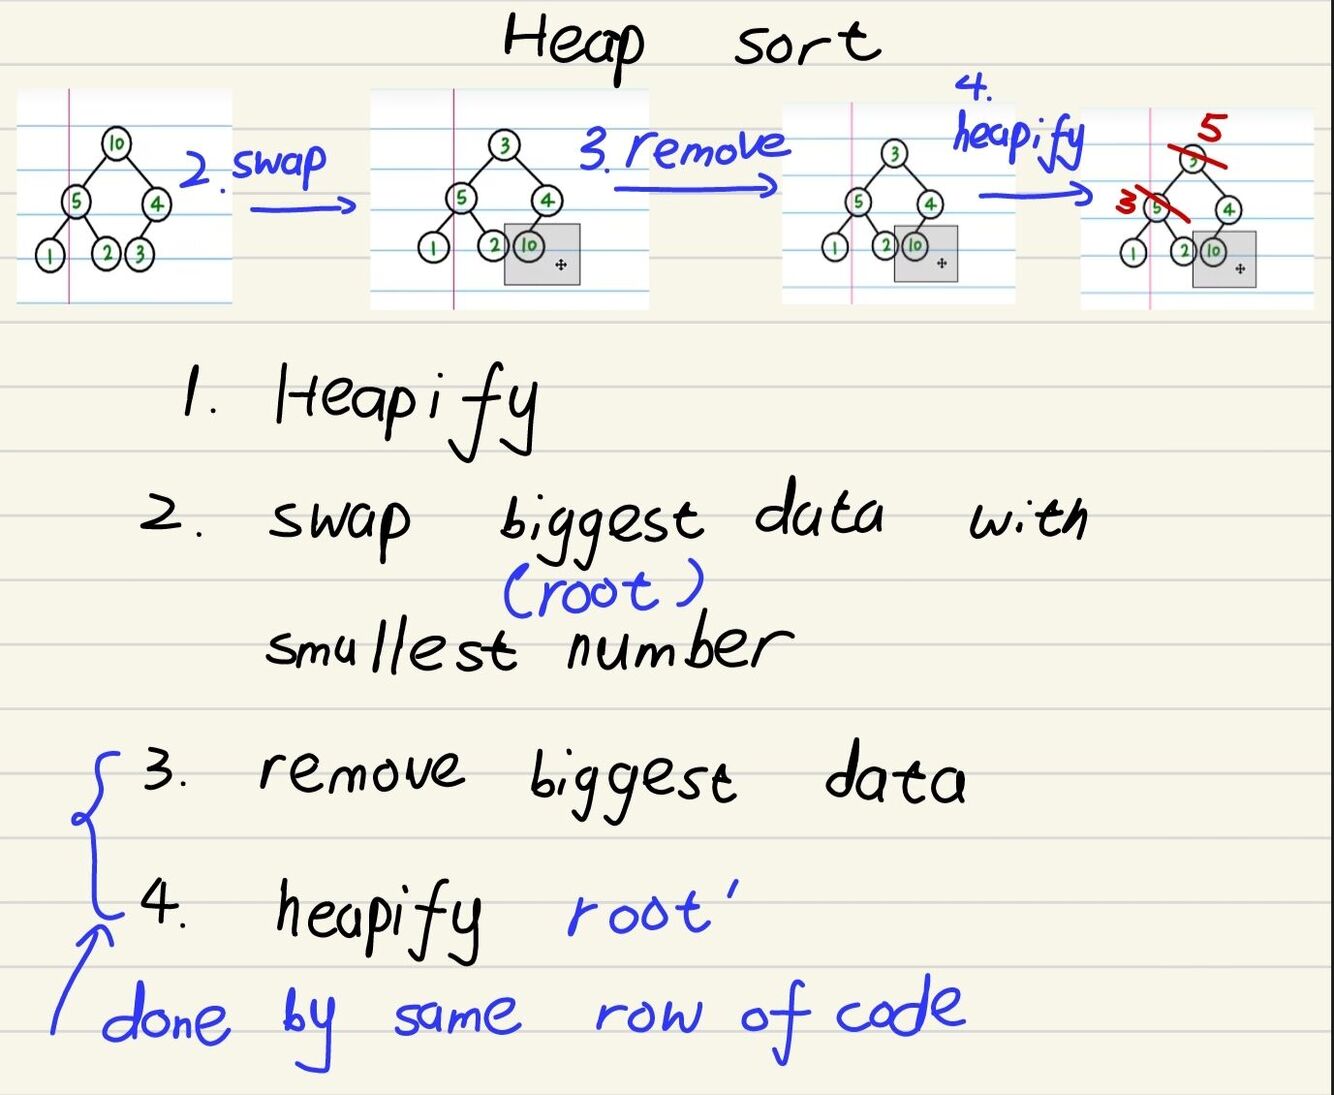 Heap sort
2. swap
3. remove
4.
heapify
10
5 4
1 2 3
3
5 4
1 2 10
3
5 4
1 2 10
5
3
3 5 4
1 2 10
1. Heapify
2. swap biggest data with
(root)
smallest number
3. remove biggest data
4. heapify root'
done by same row of code